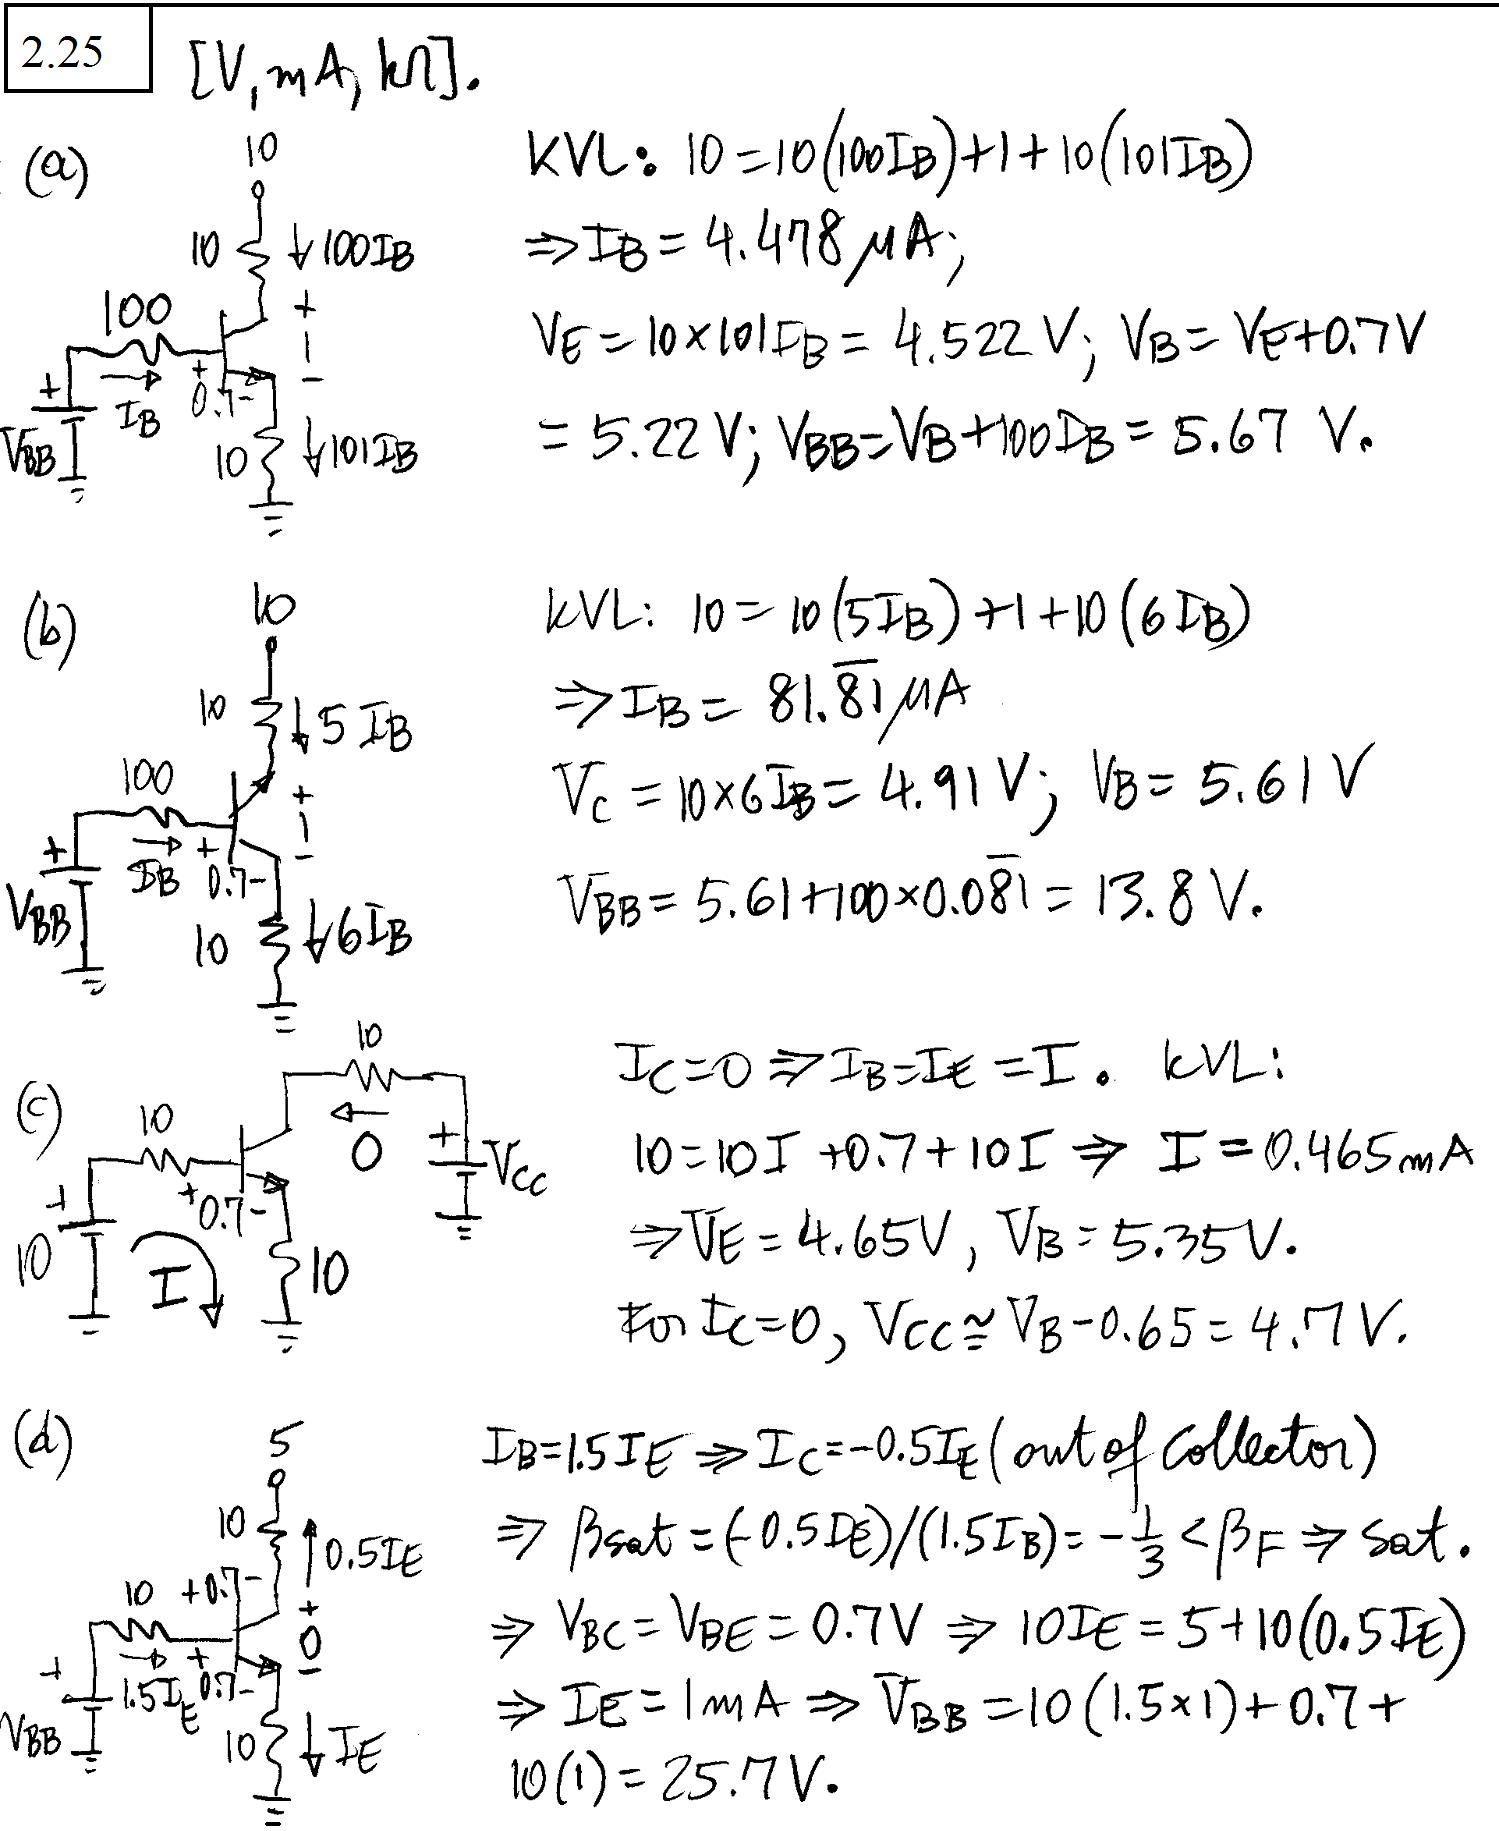 2.25
[V, mA, kΩ].
(a)
10
10
100I_B
100
+
1
-
+
0.7-
I_B
+
V_BB
10
101I_B
KVL: 10 = 10(100I_B)+1+10(101I_B)
⇒ I_B = 4.478 μA;
V_E = 10×101I_B = 4.522 V; V_B = V_E+0.7V
= 5.22 V; V_BB = V_B+100I_B = 5.67 V.
(b)
10
10
5I_B
100
+
1
-
+
I_B
+
0.7-
V_BB
10
6I_B
KVL: 10 = 10(5I_B)+1+10(6I_B)
⇒ I_B = 81.8̅1̅ μA
V_C = 10×6I_B = 4.91 V; V_B = 5.61 V
V_BB = 5.61+100×0.08̅1̅ = 13.8 V.
(c)
10
10
0
+
V_CC
+
0.7-
+
10
I
10
I_C=0 ⇒ I_B=I_E=I. KVL:
10=10I+0.7+10I ⇒ I=0.465mA
⇒ V_E=4.65V, V_B=5.35V.
For I_C=0, V_CC≅V_B-0.65=4.7V.
(d)
5
10
0.5I_E
10
+0.7-
+
0
-
+
1.5I_E
+
0.7-
V_BB
10
I_E
I_B=1.5I_E ⇒ I_C=-0.5I_E (out of collector)
⇒ βsat=(-0.5I_E)/(1.5I_B)=-1/3<β_F ⇒ sat.
⇒ V_BC=V_BE=0.7V ⇒ 10I_E=5+10(0.5I_E)
⇒ I_E=1mA ⇒ V_BB=10(1.5×1)+0.7+
10(1)=25.7V.